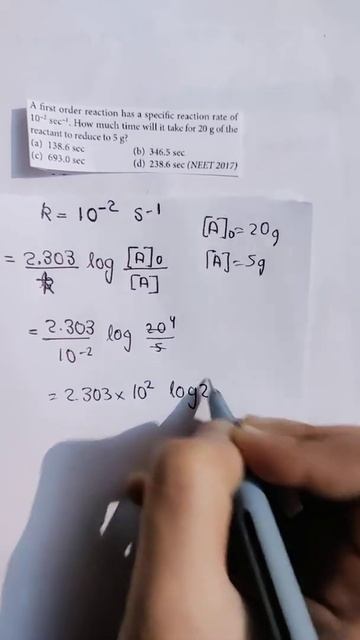 A first order reaction has a specific reaction rate of
10⁻² sec⁻¹. How much time will it take for 20 g of the
reactant to reduce to 5 g?
(a) 138.6 sec (b) 346.5 sec
(c) 693.0 sec (d) 238.6 sec (NEET 2017)
k = 10⁻² s-1
[A]₀ = 20g
= 2.303/k log [A]₀/[A]
[A] = 5g
= 2.303/10⁻² log 20/5 4
= 2.303 × 10² log2